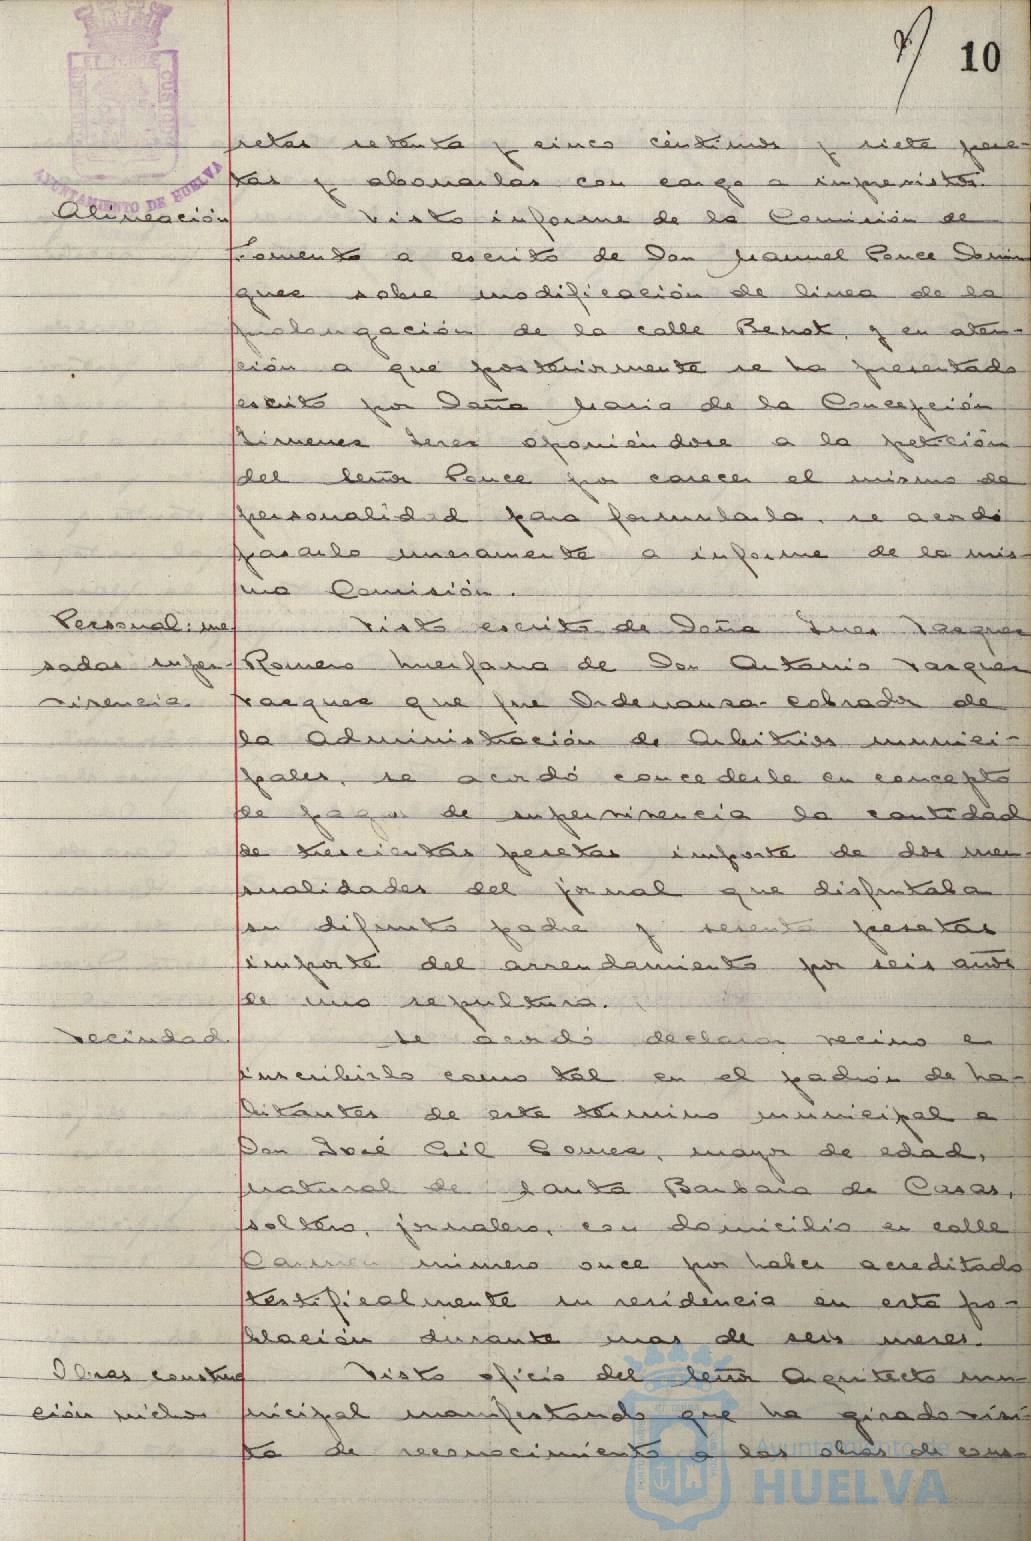 10
PORTUS MARIS ET TERRE CUSTODIA
AYUNTAMIENTO DE HUELVA
setas setenta y cinco céntimos y siete pese-
tas y abonarlas con cargo a imprevistos.
Alineación
Visto informe de la Comisión de
Fomento a escrito de Don Manuel Ponce Domin
guez sobre modificación de linea de la
prolongación de la calle Benot, y en aten-
ción a que posteriormente se ha presentado
escrito por Doña Maria de la Concepción
Jimenez Jerez oponiéndose a la petición
del Señor Ponce por carecer el mismo de
personalidad para formularla, se acordó
pasarlo nuevamente a informe de la mis-
ma Comisión.
Personal: me
sadas super-
vivencia
Visto escrito de Doña Ines Vazquez
Romero huerfana de Don Antonio Vazquez
Vazquez que fue Ordenanza-cobrador de
la Administración de Arbitrios munici-
pales, se acordó concederle en concepto
de pagas de supervivencia la cantidad
de trescientas pesetas importe de dos men-
sualidades del jornal que disfrutaba
su difunto padre y sesenta pesetas
importe del arrendamiento por seis años
de una sepultura.
Vecindad
Se acordó declarar vecino e
inscribirlo como tal en el padrón de ha-
bitantes de este término municipal a
Don José Gil Gomez, mayor de edad,
natural de Santa Barbara de Casas,
soltero, jornalero, con domicilio en calle
Carmen número once por haber acreditado
testificalmente su residencia en esta po-
blación durante mas de seis meses.
Obras construc
ción nichos
Visto oficio del Señor Arquitecto mu-
nicipal manifestando que ha girado visi-
ta de reconocimiento a las obras de cons-
Ayuntamiento de
HUELVA